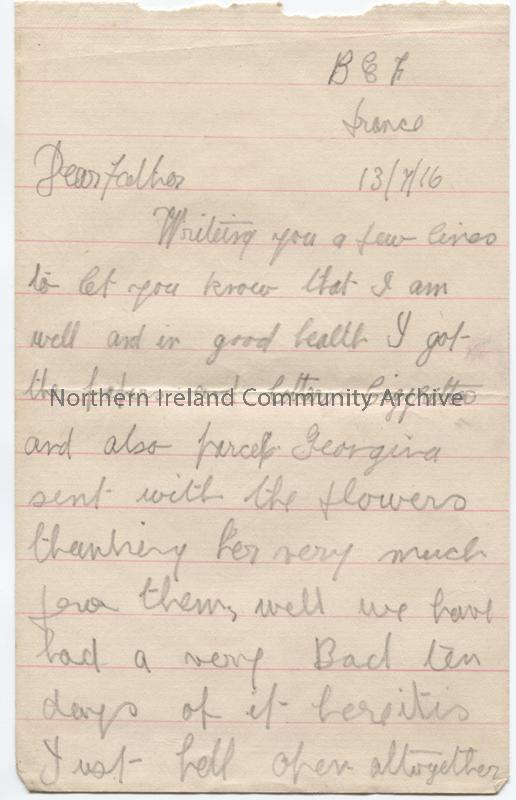 B E F
france
Dear father 13/7/16
Writeing you a few lines
to let you know that I am
well and in good health I got
the papers and letter Ciggrettes
Northern Ireland Community Archive
and also parcel Georgina
sent with the flowers
thanking her very much
for them, well we have
had a very Bad ten
days of it here it is
Just hell open altoyether